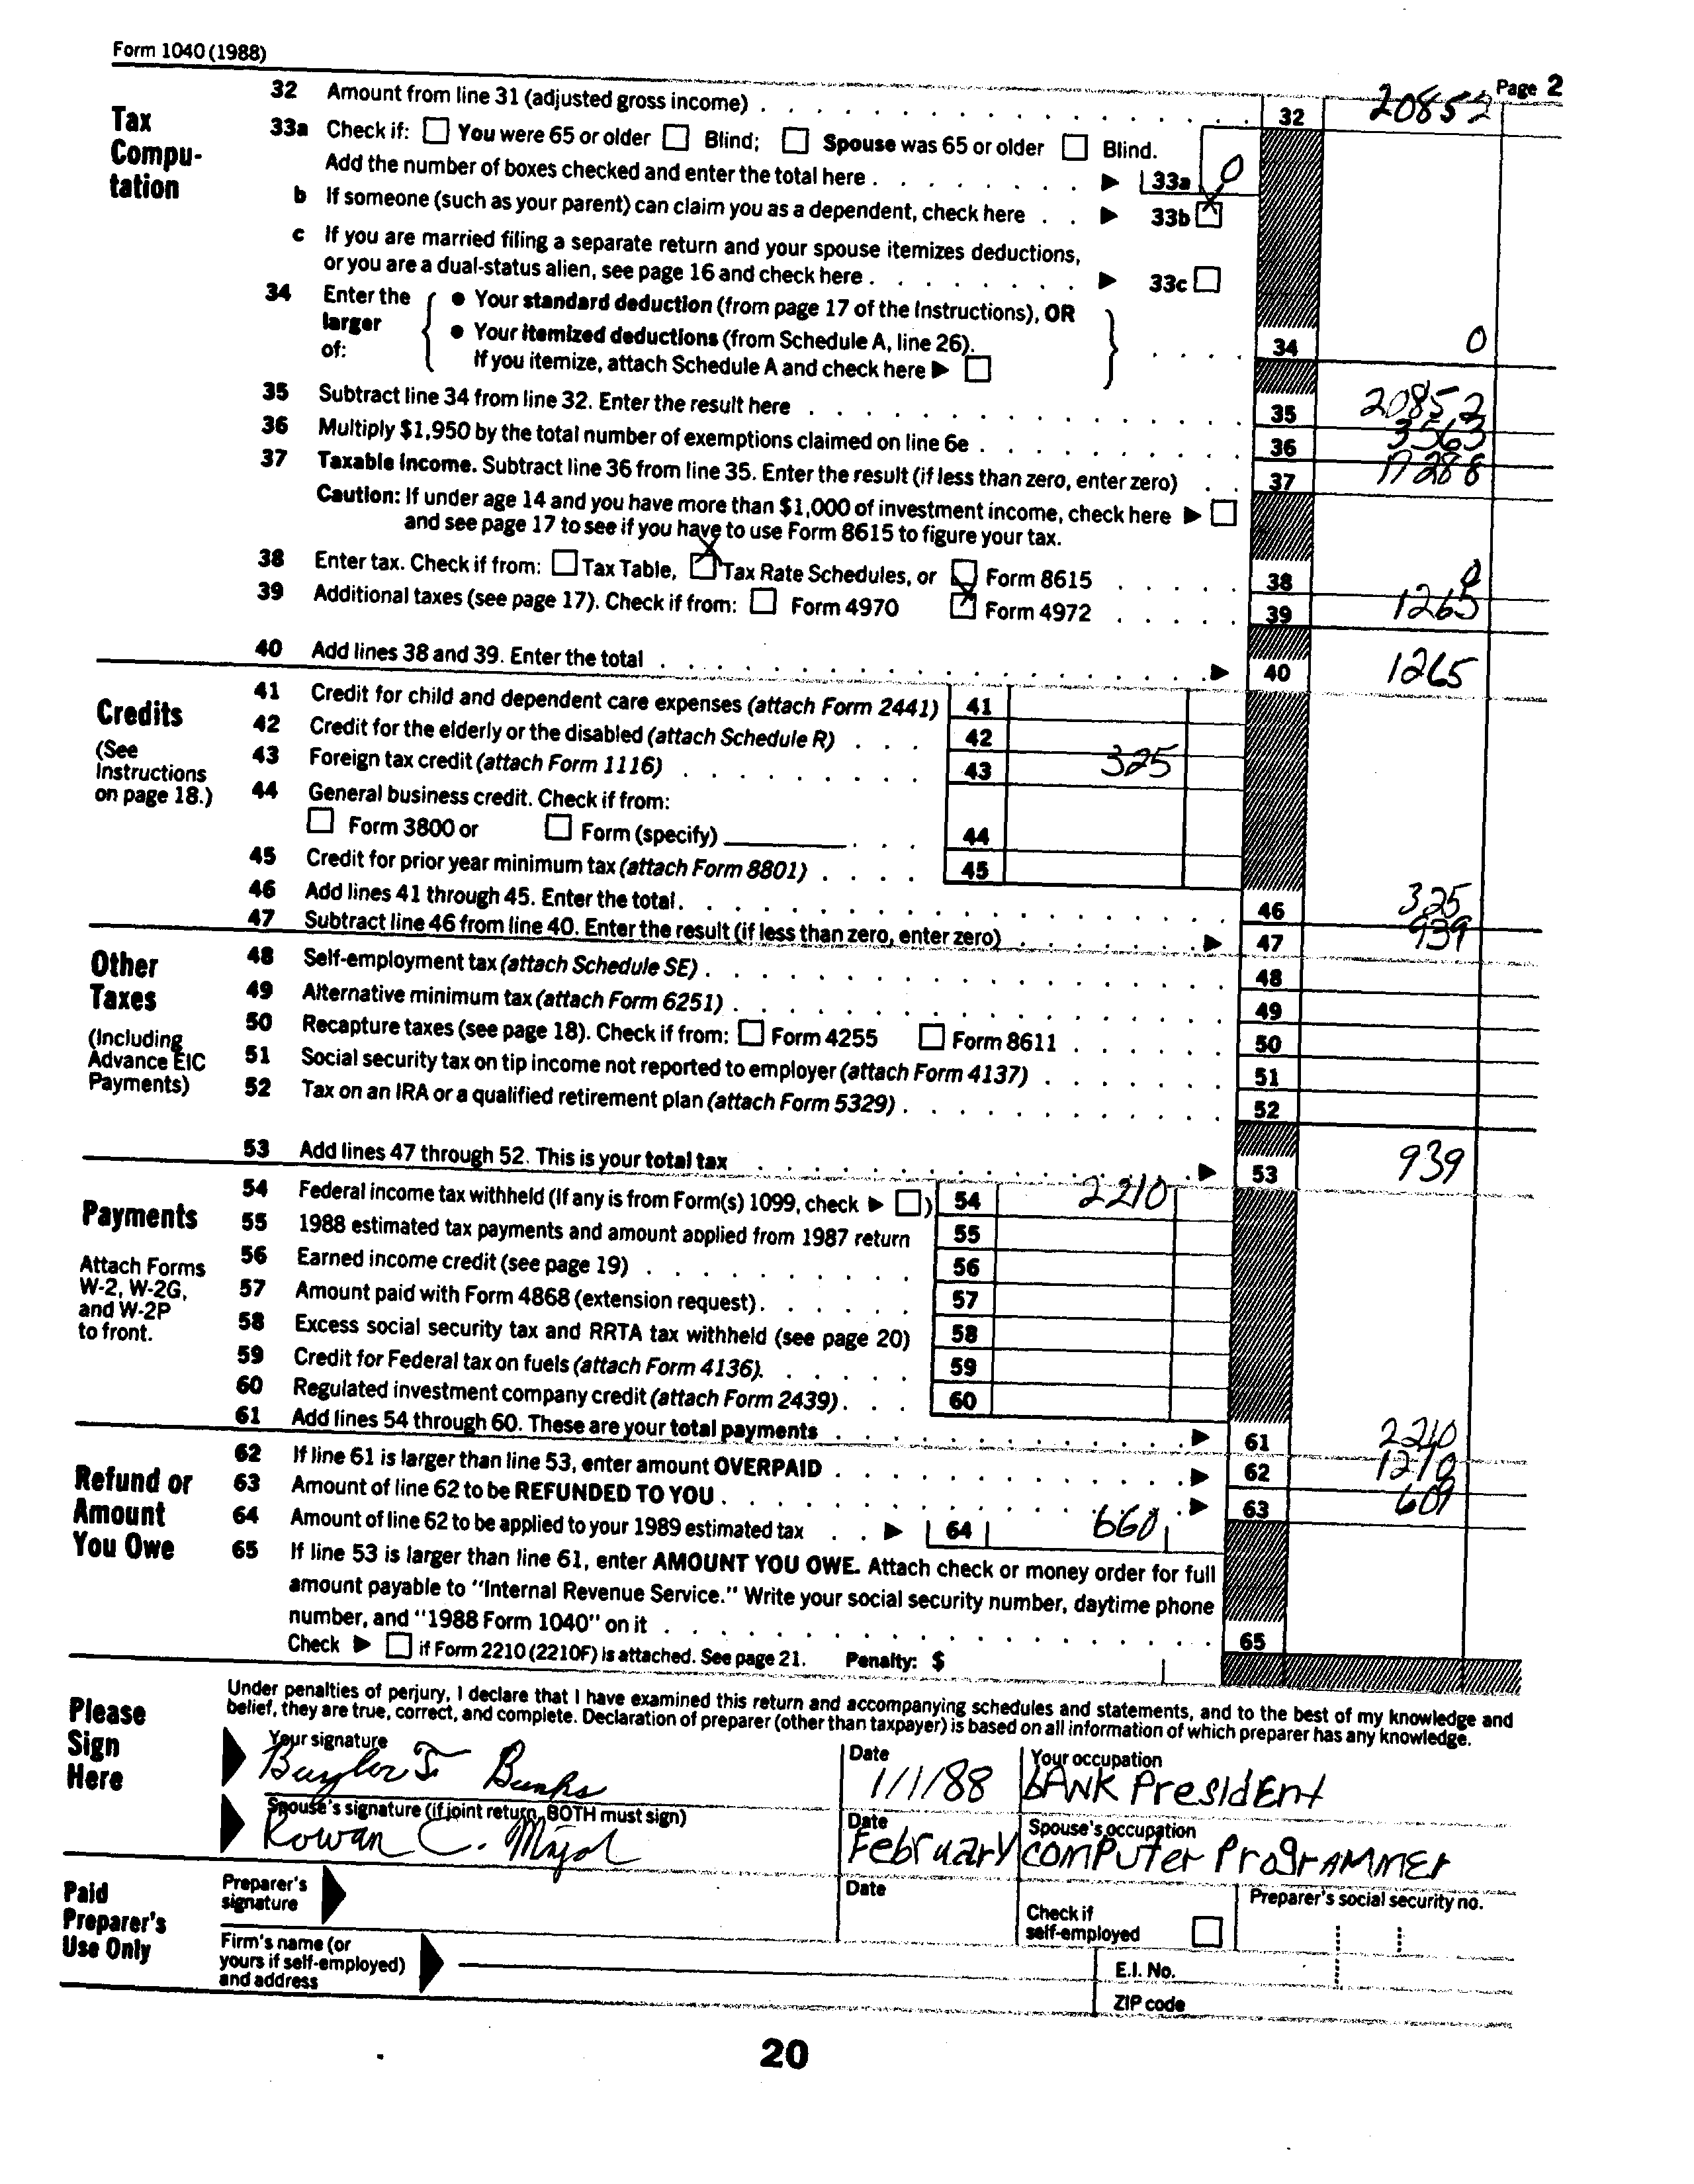 Form 1040 (1988)
Page 2
Tax Compu-
tation
32 Amount from line 31 (adjusted gross income) . . . 32 20852
33a Check if: ☐ You were 65 or older ☐ Blind; ☐ Spouse was 65 or older ☐ Blind.
Add the number of boxes checked and enter the total here . . . ▶ 33a 0
b If someone (such as your parent) can claim you as a dependent, check here . . ▶ 33b ☒
c If you are married filing a separate return and your spouse itemizes deductions,
or you are a dual-status alien, see page 16 and check here . . . ▶ 33c ☐
34 Enter the larger of:
● Your standard deduction (from page 17 of the Instructions), OR
● Your itemized deductions (from Schedule A, line 26).
If you itemize, attach Schedule A and check here ▶ ☐ . . . . 34 0
35 Subtract line 34 from line 32. Enter the result here . . . 35 20852
36 Multiply $1,950 by the total number of exemptions claimed on line 6e . . . 36 3563
37 Taxable income. Subtract line 36 from line 35. Enter the result (if less than zero, enter zero) . . 37 17288
Caution: If under age 14 and you have more than $1,000 of investment income, check here ▶ ☐
and see page 17 to see if you have to use Form 8615 to figure your tax.
38 Enter tax. Check if from: ☐ Tax Table, ☒ Tax Rate Schedules, or ☐ Form 8615 . . . 38 0
39 Additional taxes (see page 17). Check if from: ☐ Form 4970 ☒ Form 4972 . . . 39 1265
40 Add lines 38 and 39. Enter the total . . . ▶ 40 1265
Credits
(See
Instructions
on page 18.)
41 Credit for child and dependent care expenses (attach Form 2441) 41
42 Credit for the elderly or the disabled (attach Schedule R) . . . 42
43 Foreign tax credit (attach Form 1116) . . . 43 325
44 General business credit. Check if from:
☐ Form 3800 or ☐ Form (specify) ______ . . . 44
45 Credit for prior year minimum tax (attach Form 8801) . . . . 45
46 Add lines 41 through 45. Enter the total . . . 46 325
47 Subtract line 46 from line 40. Enter the result (if less than zero, enter zero) . . . ▶ 47 939
Other
Taxes
(Including
Advance EIC
Payments)
48 Self-employment tax (attach Schedule SE) . . . 48
49 Alternative minimum tax (attach Form 6251) . . . 49
50 Recapture taxes (see page 18). Check if from: ☐ Form 4255 ☐ Form 8611 . . . 50
51 Social security tax on tip income not reported to employer (attach Form 4137) . . . 51
52 Tax on an IRA or a qualified retirement plan (attach Form 5329) . . . 52
53 Add lines 47 through 52. This is your total tax . . . ▶ 53 939
Payments
Attach Forms
W-2, W-2G,
and W-2P
to front.
54 Federal income tax withheld (If any is from Form(s) 1099, check ▶ ☐ ) 54 2210
55 1988 estimated tax payments and amount applied from 1987 return 55
56 Earned income credit (see page 19) . . . 56
57 Amount paid with Form 4868 (extension request) . . . 57
58 Excess social security tax and RRTA tax withheld (see page 20) 58
59 Credit for Federal tax on fuels (attach Form 4136) . . . 59
60 Regulated investment company credit (attach Form 2439) . . . 60
61 Add lines 54 through 60. These are your total payments . . . ▶ 61 2210
Refund or
Amount
You Owe
62 If line 61 is larger than line 53, enter amount OVERPAID . . . ▶ 62 1270
63 Amount of line 62 to be REFUNDED TO YOU . . . ▶ 63 609
64 Amount of line 62 to be applied to your 1989 estimated tax . . ▶ 64 660
65 If line 53 is larger than line 61, enter AMOUNT YOU OWE. Attach check or money order for full
amount payable to "Internal Revenue Service." Write your social security number, daytime phone
number, and "1988 Form 1040" on it . . . 65
Check ▶ ☐ if Form 2210 (2210F) is attached. See page 21. Penalty: $
Please
Sign
Here
Under penalties of perjury, I declare that I have examined this return and accompanying schedules and statements, and to the best of my knowledge and
belief, they are true, correct, and complete. Declaration of preparer (other than taxpayer) is based on all information of which preparer has any knowledge.
Your signature Date Your occupation
Baylor J Banks 1/1/88 bANK PresIdEnt
Spouse's signature (if joint return, BOTH must sign) Date Spouse's occupation
Rowan C. Major February comPuTer ProgrAMMEr
Paid
Preparer's
Use Only
Preparer's signature Date Check if self-employed ☐ Preparer's social security no.
Firm's name (or
yours if self-employed)
and address
E.I. No.
ZIP code
20